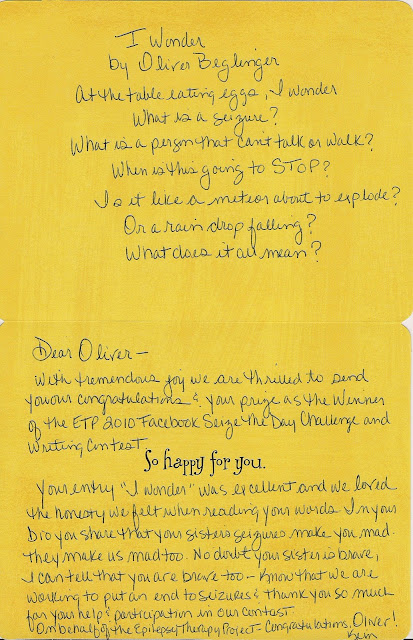 I Wonder
by Oliver Beglinger
At the table eating eggs, I wonder
What is a seizure?
What is a person that can't talk or walk?
When is this going to STOP?
Is it like a meteor about to explode?
Or a rain drop falling?
What does it all mean?
Dear Oliver-
With tremendous joy we are thrilled to send
you our congratulations & your prize as the Winner
of the ETP 2010 Facebook Seize the Day Challenge and
Writing Contest.
So happy for you.
Your entry "I wonder" was excellent and we loved
the honesty we felt when reading your words. In your
Bio you share that your sisters seizures make you mad.
They make us mad too. No doubt your sister is brave,
I can tell that you are brave too - Know that we are
working to put an end to seizures & thank you so much
for your help & participation in our contest.
On behalf of the Epilepsy Therapy Project - Congratulations, Oliver!